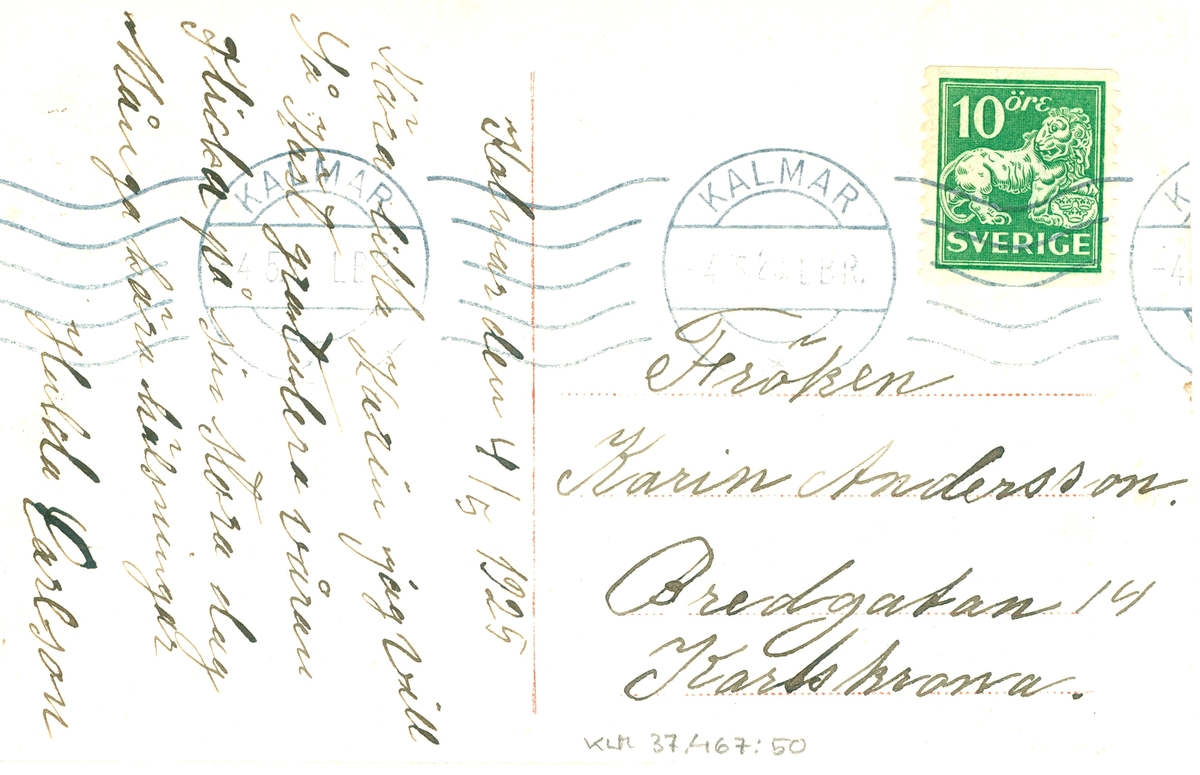 Kalmar den 4/5 1925
Kära lilla Karin jag vill
så hjärt gratulera våran
flicka på sin stora dag
Många kära hälsningar
Hulda Carlson
KALMAR
KALMAR
10 öre
SVERIGE
Fröken
Karin Andersson.
Bredgatan 14
Karlskrona.
KLM 37/467:50